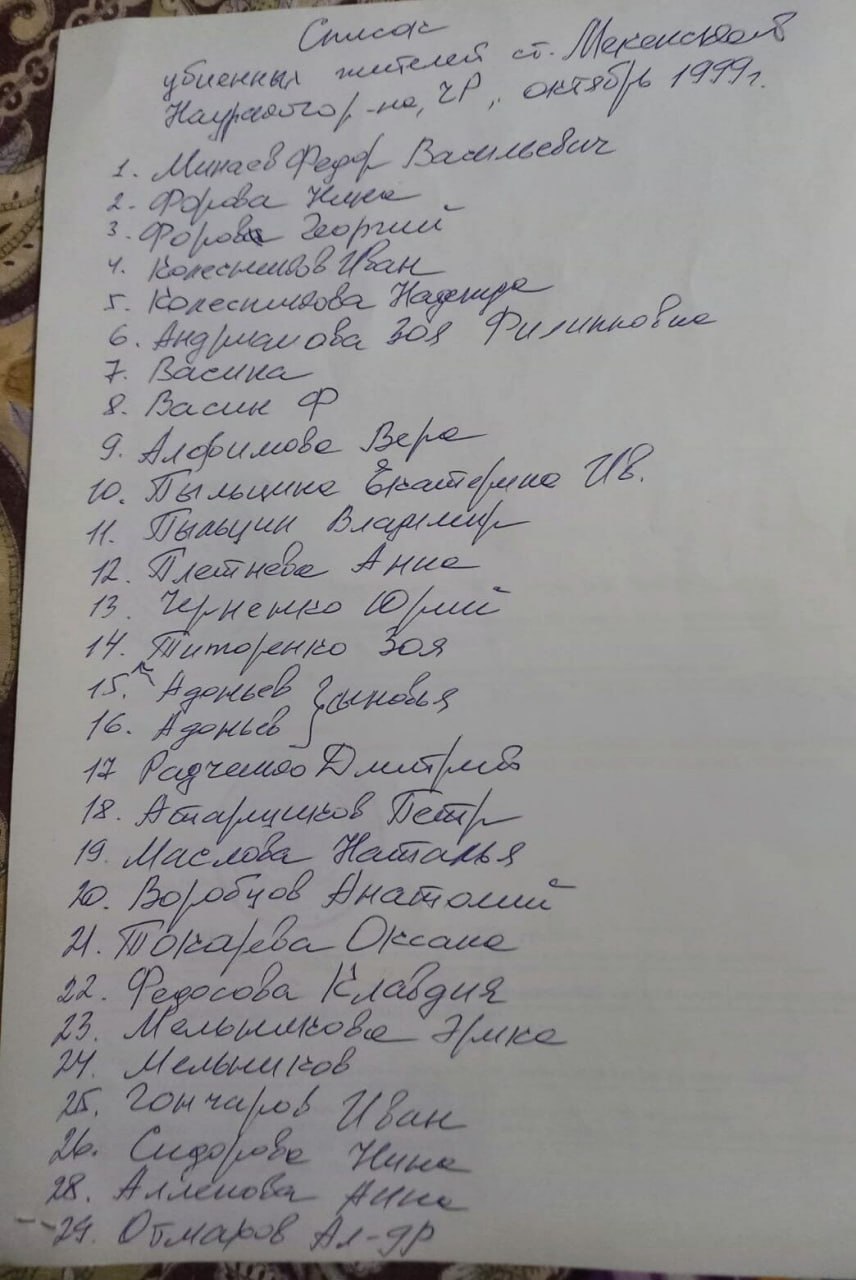 Список
убиенных жителей ст. Мекенской
Наурского р-на, ЧР, октябрь 1999г.
1. Минаев Федор Васильевич
2. Форова Нина
3. Форов Георгий
4. Колесников Иван
5. Колесникова Надежда
6. Андрианова Зоя Филипповна
7. Васина
8. Васин Ф
9. Алфимова Вера
10. Пыльцина Екатерина Ив.
11. Пыльцин Владимир
12. Плетнева Анна
13. Черненко Юрий
14. Титоренко Зоя
15. Адоньев } сыновья
16. Адоньев
17 Радченко Дмитрий
18. Атарщиков Петр
19. Маслова Наталья
20. Воробцов Анатолий
21. Токарева Оксана
22. Федосова Клавдия
23. Мельникова Эрика
24. Мельников
25. Гончаров Иван
26. Сидорова Нина
28. Алленова Анна
29. Отмаров Ал-др